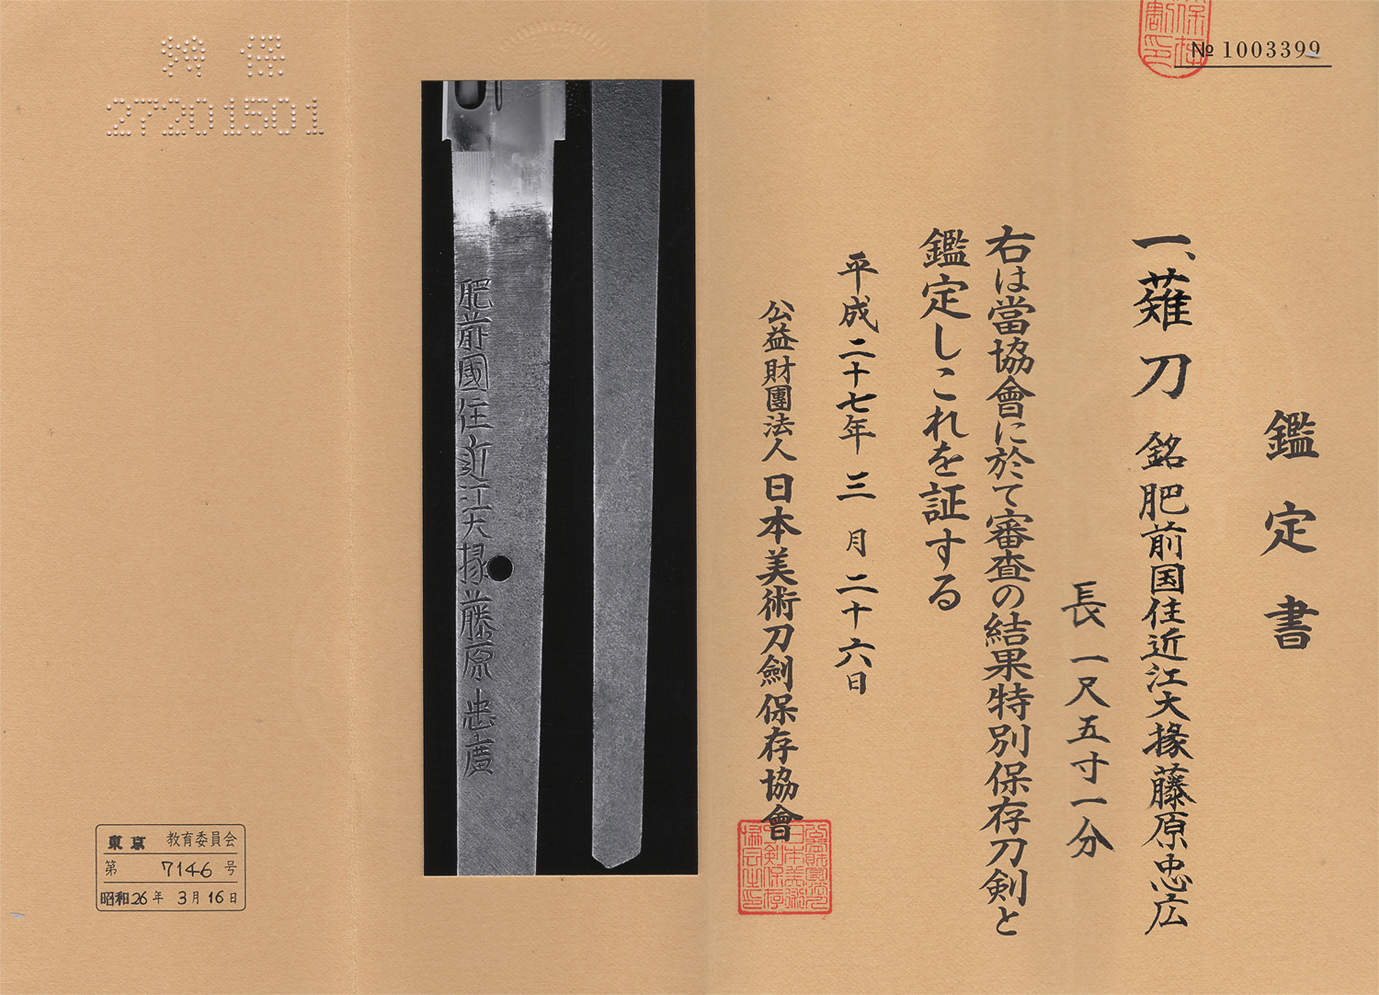 № 1003399
鑑定書
一、薙刀 銘 肥前国住近江大掾藤原忠広
長 一尺五寸一分
右は當協會に於て審査の結果特別保存刀剣と
鑑定しこれを証する
平成二十七年 三月二十六日
公益財團法人 日本美術刀劍保存協會
肥前國住近江大掾藤原忠廣
特保
27201501
東京 教育委員会
第 7146 号
昭和26年 3月16日